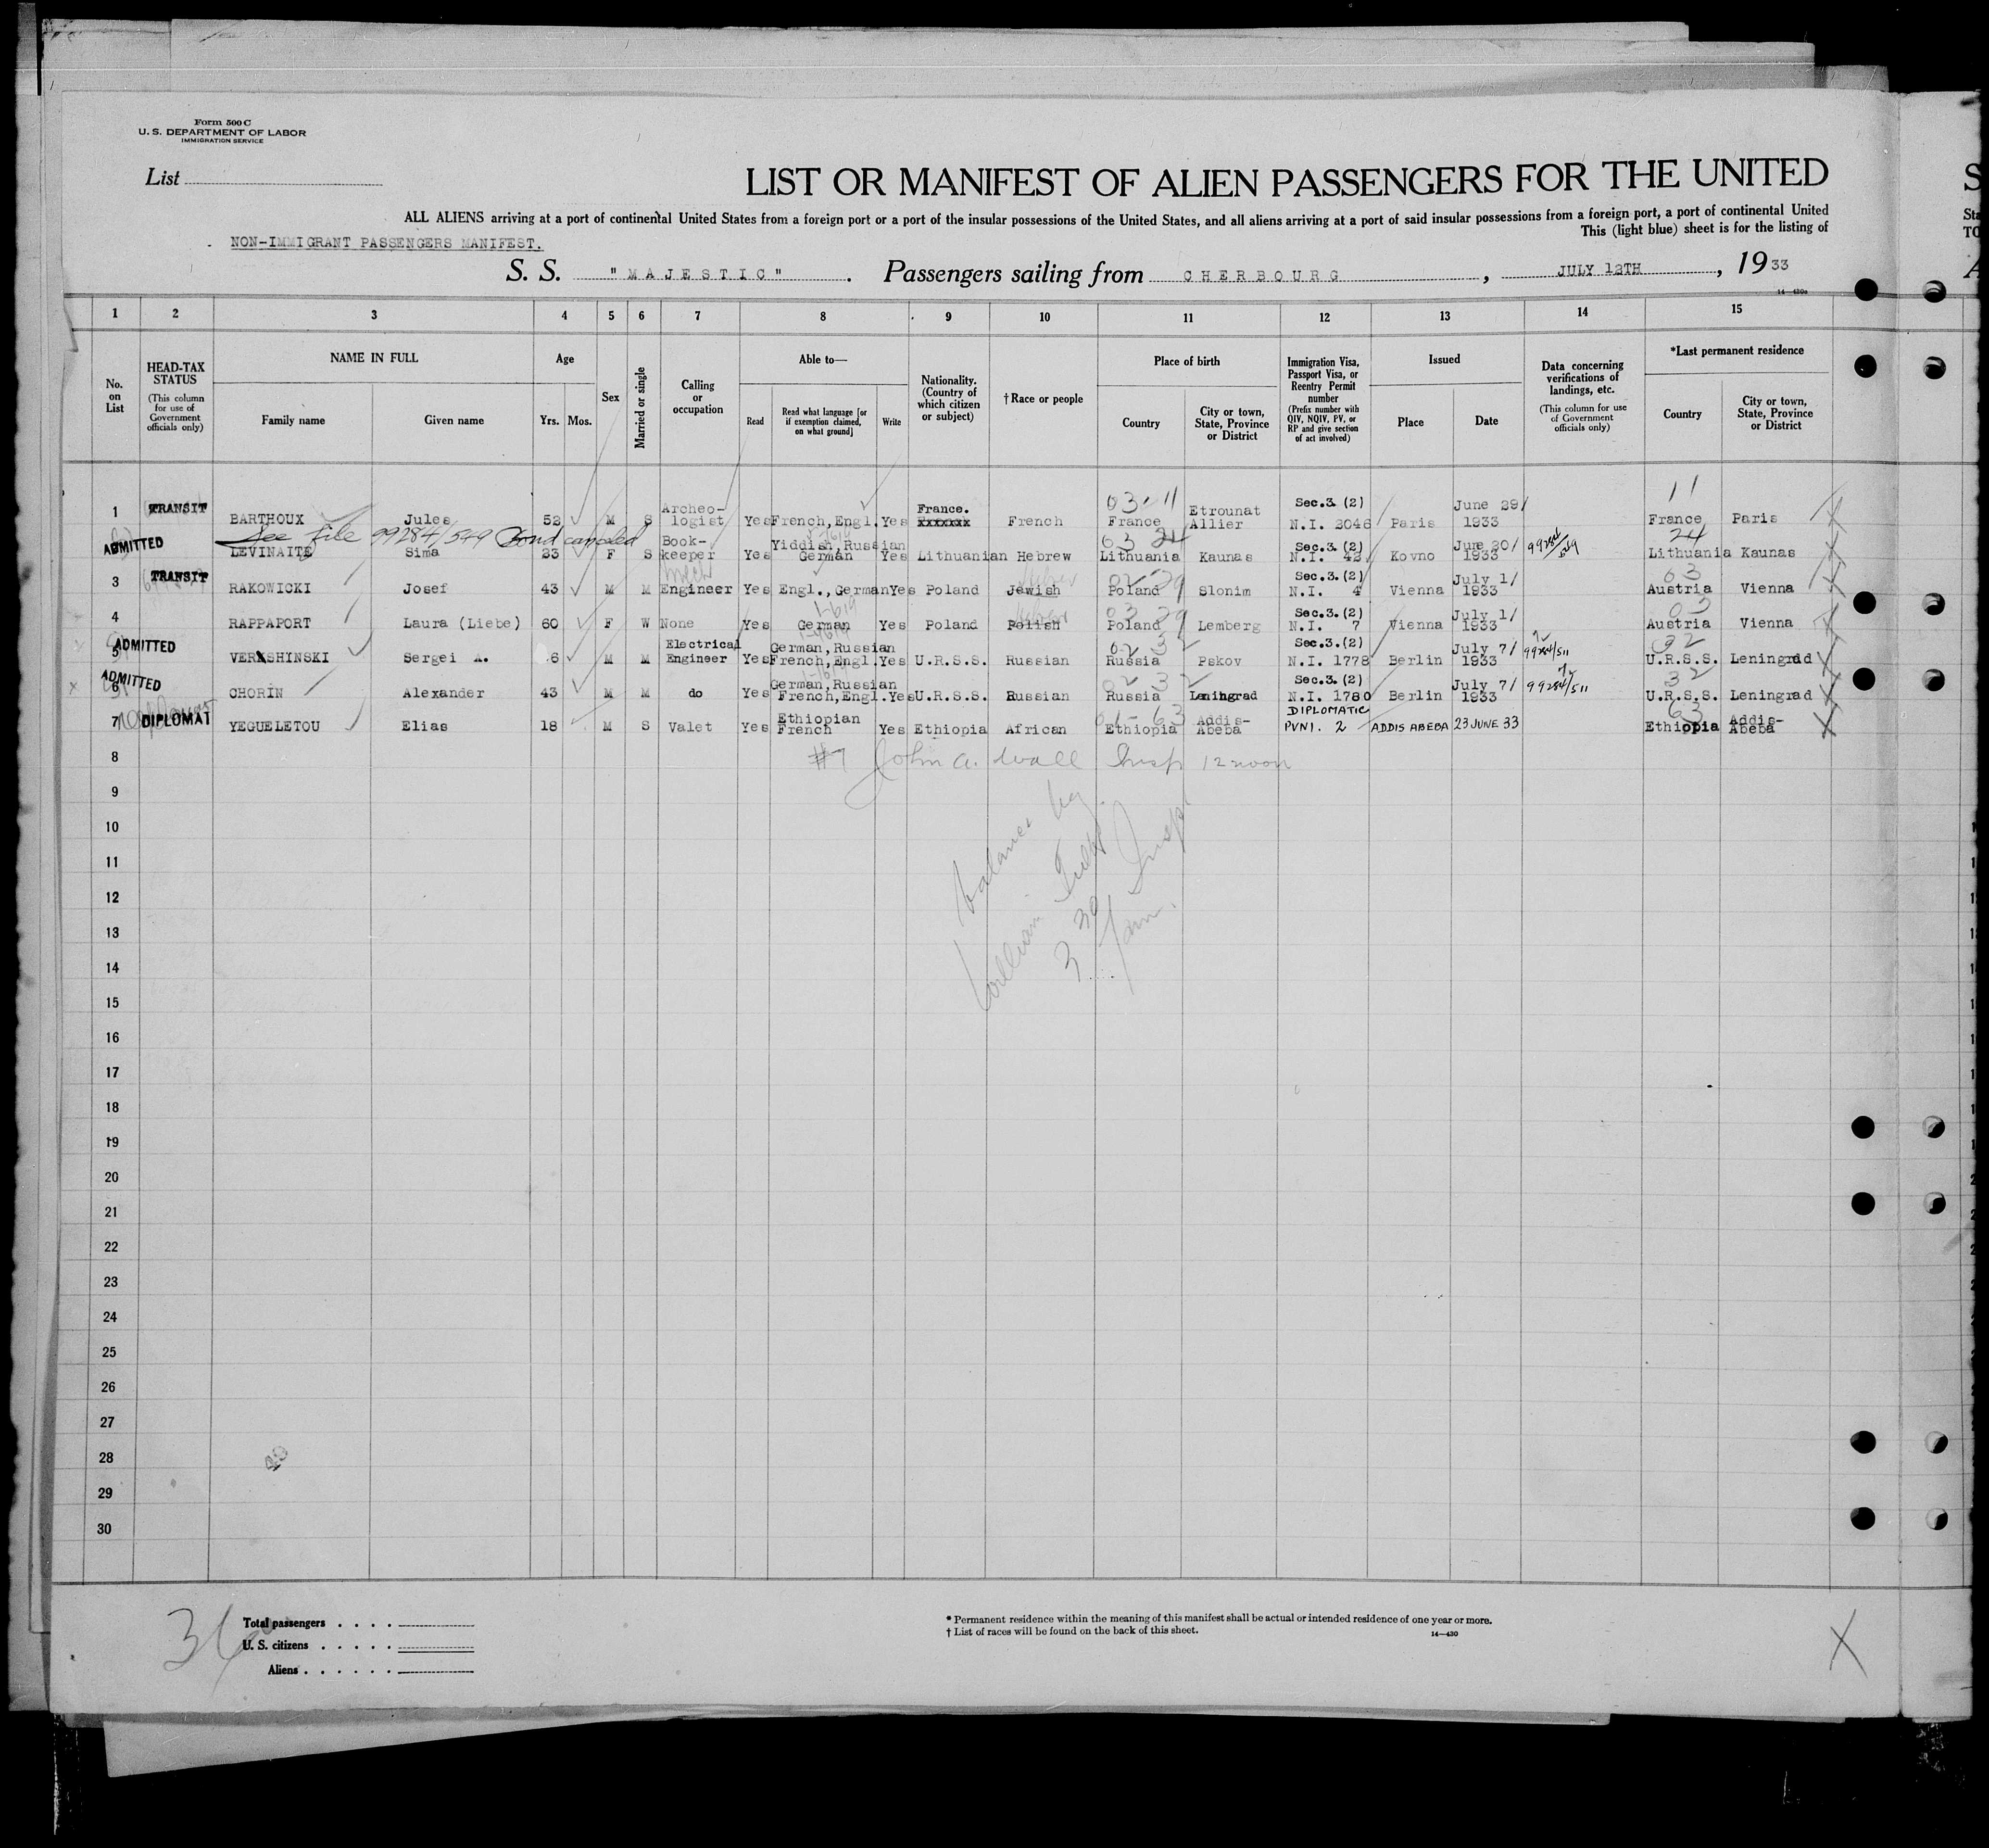 Form 500 C
U. S. DEPARTMENT OF LABOR
IMMIGRATION SERVICE
List
LIST OR MANIFEST OF ALIEN PASSENGERS FOR THE UNITED
ALL ALIENS arriving at a port of continental United States from a foreign port or a port of the insular possessions of the United States, and all aliens arriving at a port of said insular possessions from a foreign port, a port of continental United
This (light blue) sheet is for the listing of
NON-IMMIGRANT PASSENGERS MANIFEST.
S. S. "MAJESTIC". Passengers sailing from CHERBOURG, JULY 12TH, 1933
1 2 3 4 5 6 7 8 9 10 11 12 13 14 15
No. on List
HEAD-TAX STATUS (This column for use of Government officials only)
NAME IN FULL
Family name Given name
Age
Yrs. Mos.
Sex
Married or single
Calling or occupation
Able to—
Read
Read what language [or if exemption claimed, on what ground]
Write
Nationality. (Country of which citizen or subject)
† Race or people
Place of birth
Country
City or town, State, Province or District
Immigration Visa, Passport Visa, or Reentry Permit number (Prefix number with QIV, NQIV, PV, or RP and give section of act involved)
Issued
Place Date
Data concerning verifications of landings, etc. (This column for use of Government officials only)
*Last permanent residence
Country
City or town, State, Province or District
1 TRANSIT BARTHOUX Jules 52 M S Archeo-logist Yes French, Engl. Yes France. xxxxxx French 03-11 France Etrounat Allier Sec.3.(2) N.I. 2046 Paris June 29/ 1933 11 France Paris
See File 99284/549 Bond canceled
ADMITTED LEVINAITE Sima 23 F S Book-keeper Yes Yiddish,Russian German Yes Lithuanian Hebrew 63 24 Lithuania Kaunas Sec.3.(2) N.I. 42 Kovno June 20/ 1933 24 Lithuania Kaunas
3 TRANSIT RAKOWICKI Josef 43 M M Mech Engineer Yes Engl.,German Yes Poland Jewish 02-29 Poland Slonim Sec.3.(2) N.I. 4 Vienna July 1/ 1933 03 Austria Vienna
4 RAPPAPORT Laura (Liebe) 60 F W None Yes German Yes Poland Polish 03 29 Poland Lemberg Sec.3.(2) N.I. 7 Vienna July 1/ 1933 03 Austria Vienna
5 ADMITTED VERXSHINSKI Sergei A. 6 M M Electrical Engineer Yes German,Russian French,Engl. Yes U.R.S.S. Russian 02 32 Russia Pskov Sec.3.(2) N.I. 1778 Berlin July 7/ 1933 99284/511 32 U.R.S.S. Leningrad
6 ADMITTED CHORIN Alexander 43 M M do Yes German,Russian French,Engl. Yes U.R.S.S. Russian 02 32 Russia Leningrad Sec.3.(2) N.I. 1780 Berlin July 7/ 1933 99284/511 32 U.R.S.S. Leningrad
7 DIPLOMAT YEGUELETOU Elias 18 M S Valet Yes Ethiopian French Yes Ethiopia African 01-63 Ethiopia Addis-Abeba DIPLOMATIC PVNI. 2 ADDIS ABEBA 23 JUNE 33 63 Ethiopia Addis-Abeba
8 #7 John A. Wall Insp 12 noon
9
10
11
12
13
14
15
16
17
18
19
20
21
22
23
24
25
26
27
28
29
30
balance by
William
Insp.
3 30
Total passengers
U. S. citizens
Aliens
* Permanent residence within the meaning of this manifest shall be actual or intended residence of one year or more.
† List of races will be found on the back of this sheet.
14—430
X